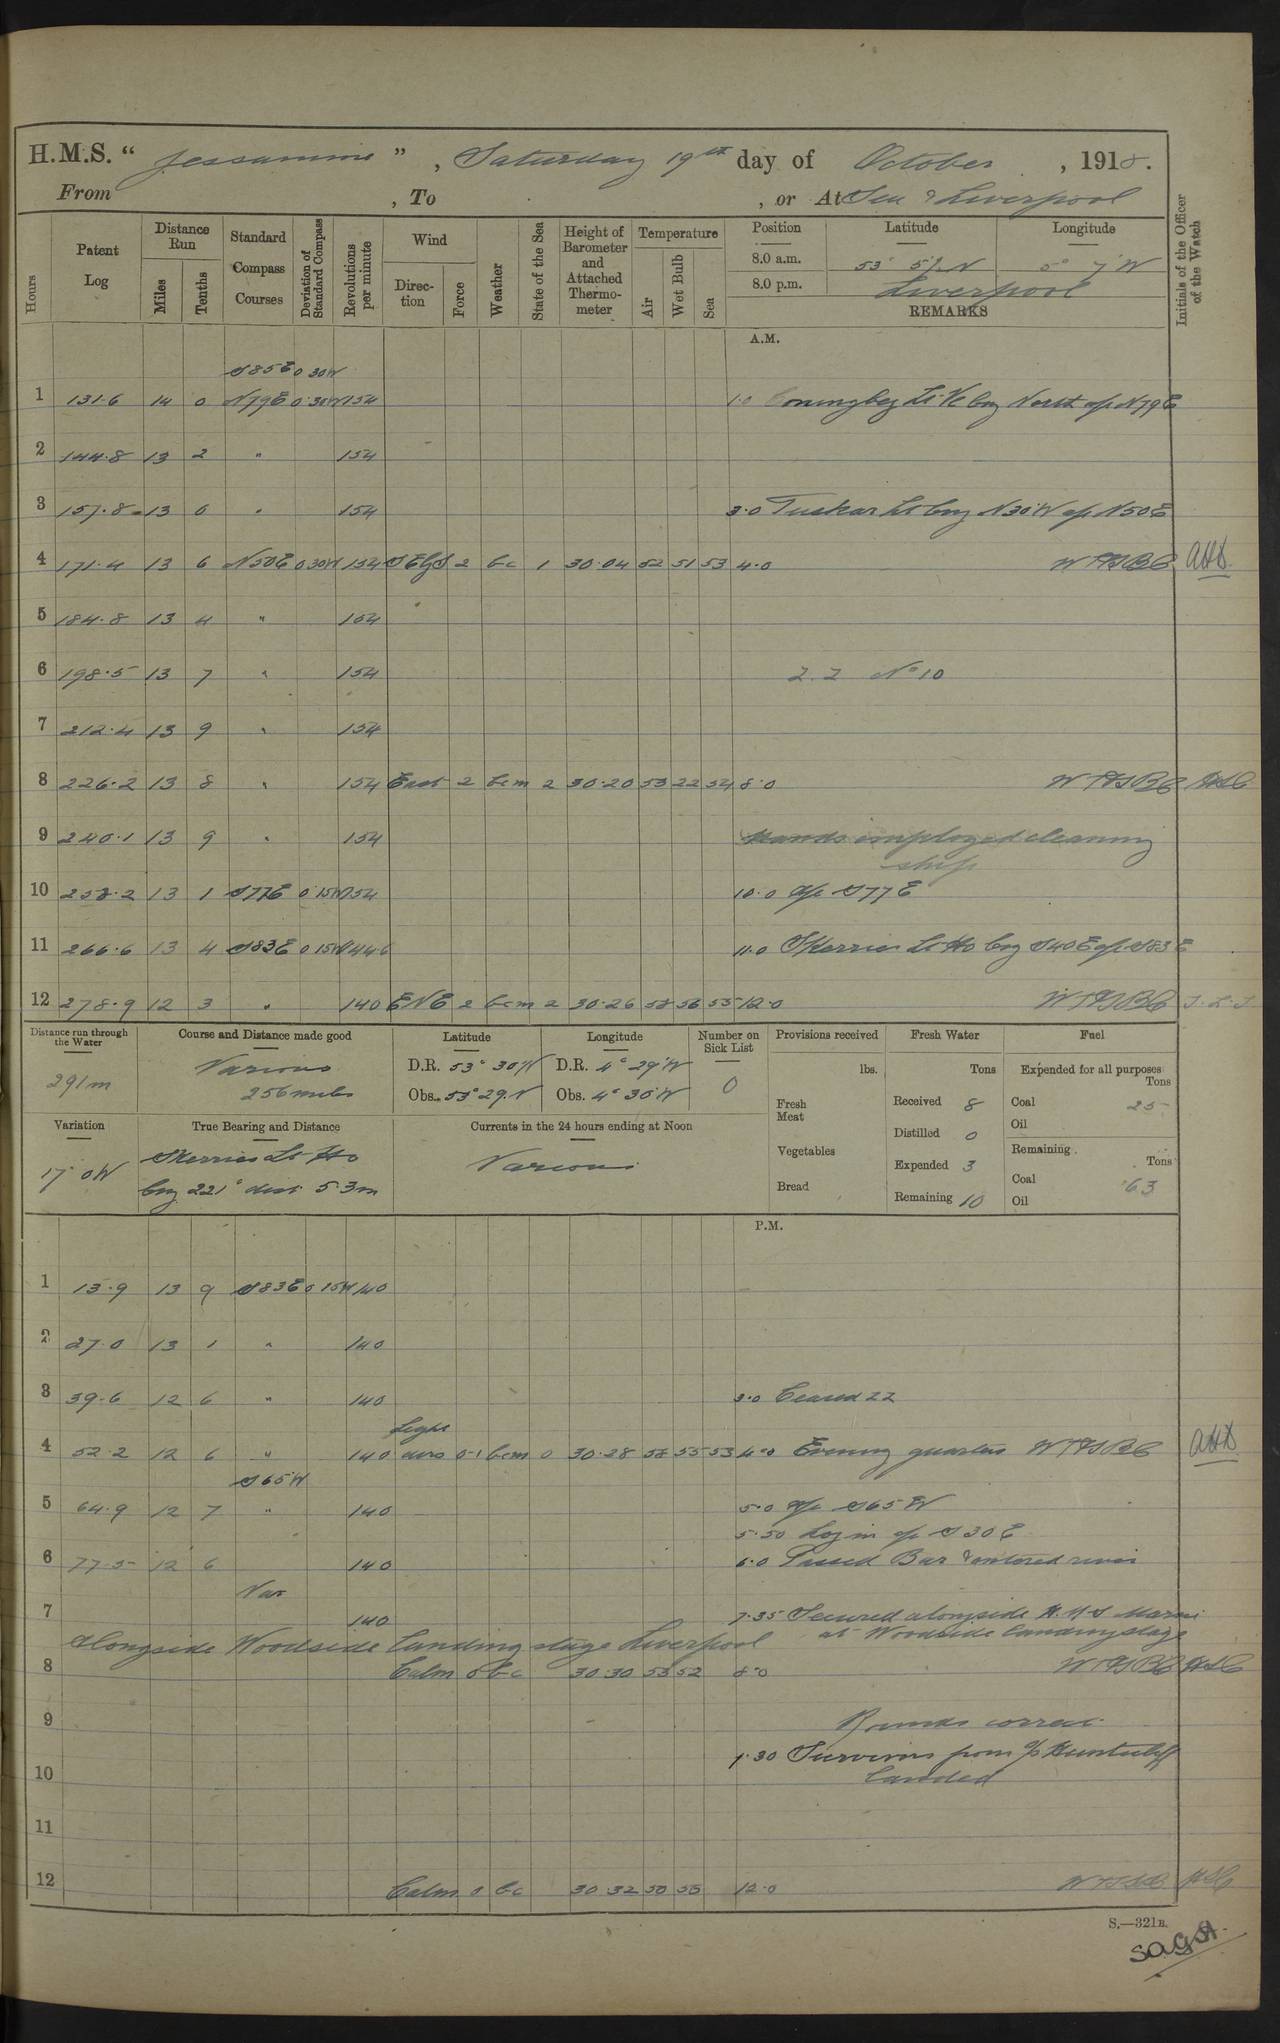 H.M.S. " Jessamine " , Saturday 19th day of October , 1918.
From , To , or At Sea & Liverpool
Hours
Patent Log
Distance Run
Miles
Tenths
Standard Compass Courses
Deviation of Standard Compass
Revolutions per minute
Wind
Direction
Force
Weather
State of the Sea
Height of Barometer and Attached Thermometer
Temperature
Air
Wet Bulb
Sea
Position Latitude Longitude
8.0 a.m. 53° 5' N 5° 7' W
8.0 p.m. Liverpool
REMARKS
Initials of the Officer of the Watch
A.M.
S85E 0 30W
1 131.6 14 0 N79E 0.30W 154 1.0 Coningbeg Lt. Vc brg North a/c N79E
2 144.8 13 2 " 154
3 157.8 13 0 " 154 3.0 Tuskar Lt brg N30W a/c N50E
4 171.4 13 6 N50E 0 30W 154 SE by S 2 bc 1 30.04 52 51 53 4.0
5 184.8 13 4 " 154
6 198.5 13 7 " 154 ZZ No 10
7 212.4 13 9 " 154
8 226.2 13 8 " 154 East 2 bcm 2 30.20 53 22 54 8.0
9 240.1 13 9 " 154 Hands employed cleaning
ship
10 253.2 13 1 S77E 0 15W 154 10.0 a/c S77E
11 266.6 13 4 S83E 0 15W 144.6 11.0 Skerries Lt Ho brg S40E a/c S83E
12 278.9 12 3 " 140 ENE 2 bcm 2 30.26 56 55 12.0
Distance run through the Water
291m
Course and Distance made good
Various
256 miles
Latitude
D.R. 53° 30' N
Obs. 53° 29. N
Longitude
D.R. 4° 29' W
Obs. 4° 30' W
Number on Sick List
0
Provisions received
lbs.
Fresh Meat
Vegetables
Bread
Fresh Water
Tons
Received 8
Distilled 0
Expended 3
Remaining 10
Fuel
Expended for all purposes
Tons
Coal 25
Oil
Remaining
Tons
Coal 63
Oil
Variation
17° 0W
True Bearing and Distance
Skerries Lt Ho
brg 221° dist 5.3m
Currents in the 24 hours ending at Noon
Various
P.M.
1 13.9 13 9 S83E 0 15W 140
2 27.0 13 1 " 140
3 39.6 12 6 " 140 3.0 Ceased ZZ
Light
4 52.2 12 6 " 140 airs 0-1 bcm 0 30.28 55 53 4.0 Evening quarters
S65W
5 64.9 12 7 " 140 5.0 a/c S65W
5.50 Log in a/c S30E
6 77.5 12 6 140 6.0 Passed Bar & entered river
Var
7 140 7.35 Secured alongside H.M.S.
at Woodside landing stage
Alongside Woodside Landing stage Liverpool
8 Calm 0 bc 30.30 53 52 8.0
9 Rounds correct
Survivors from s/s landed
10
11
12 Calm 0 bc 30.32 50 12.0
S.—321B.